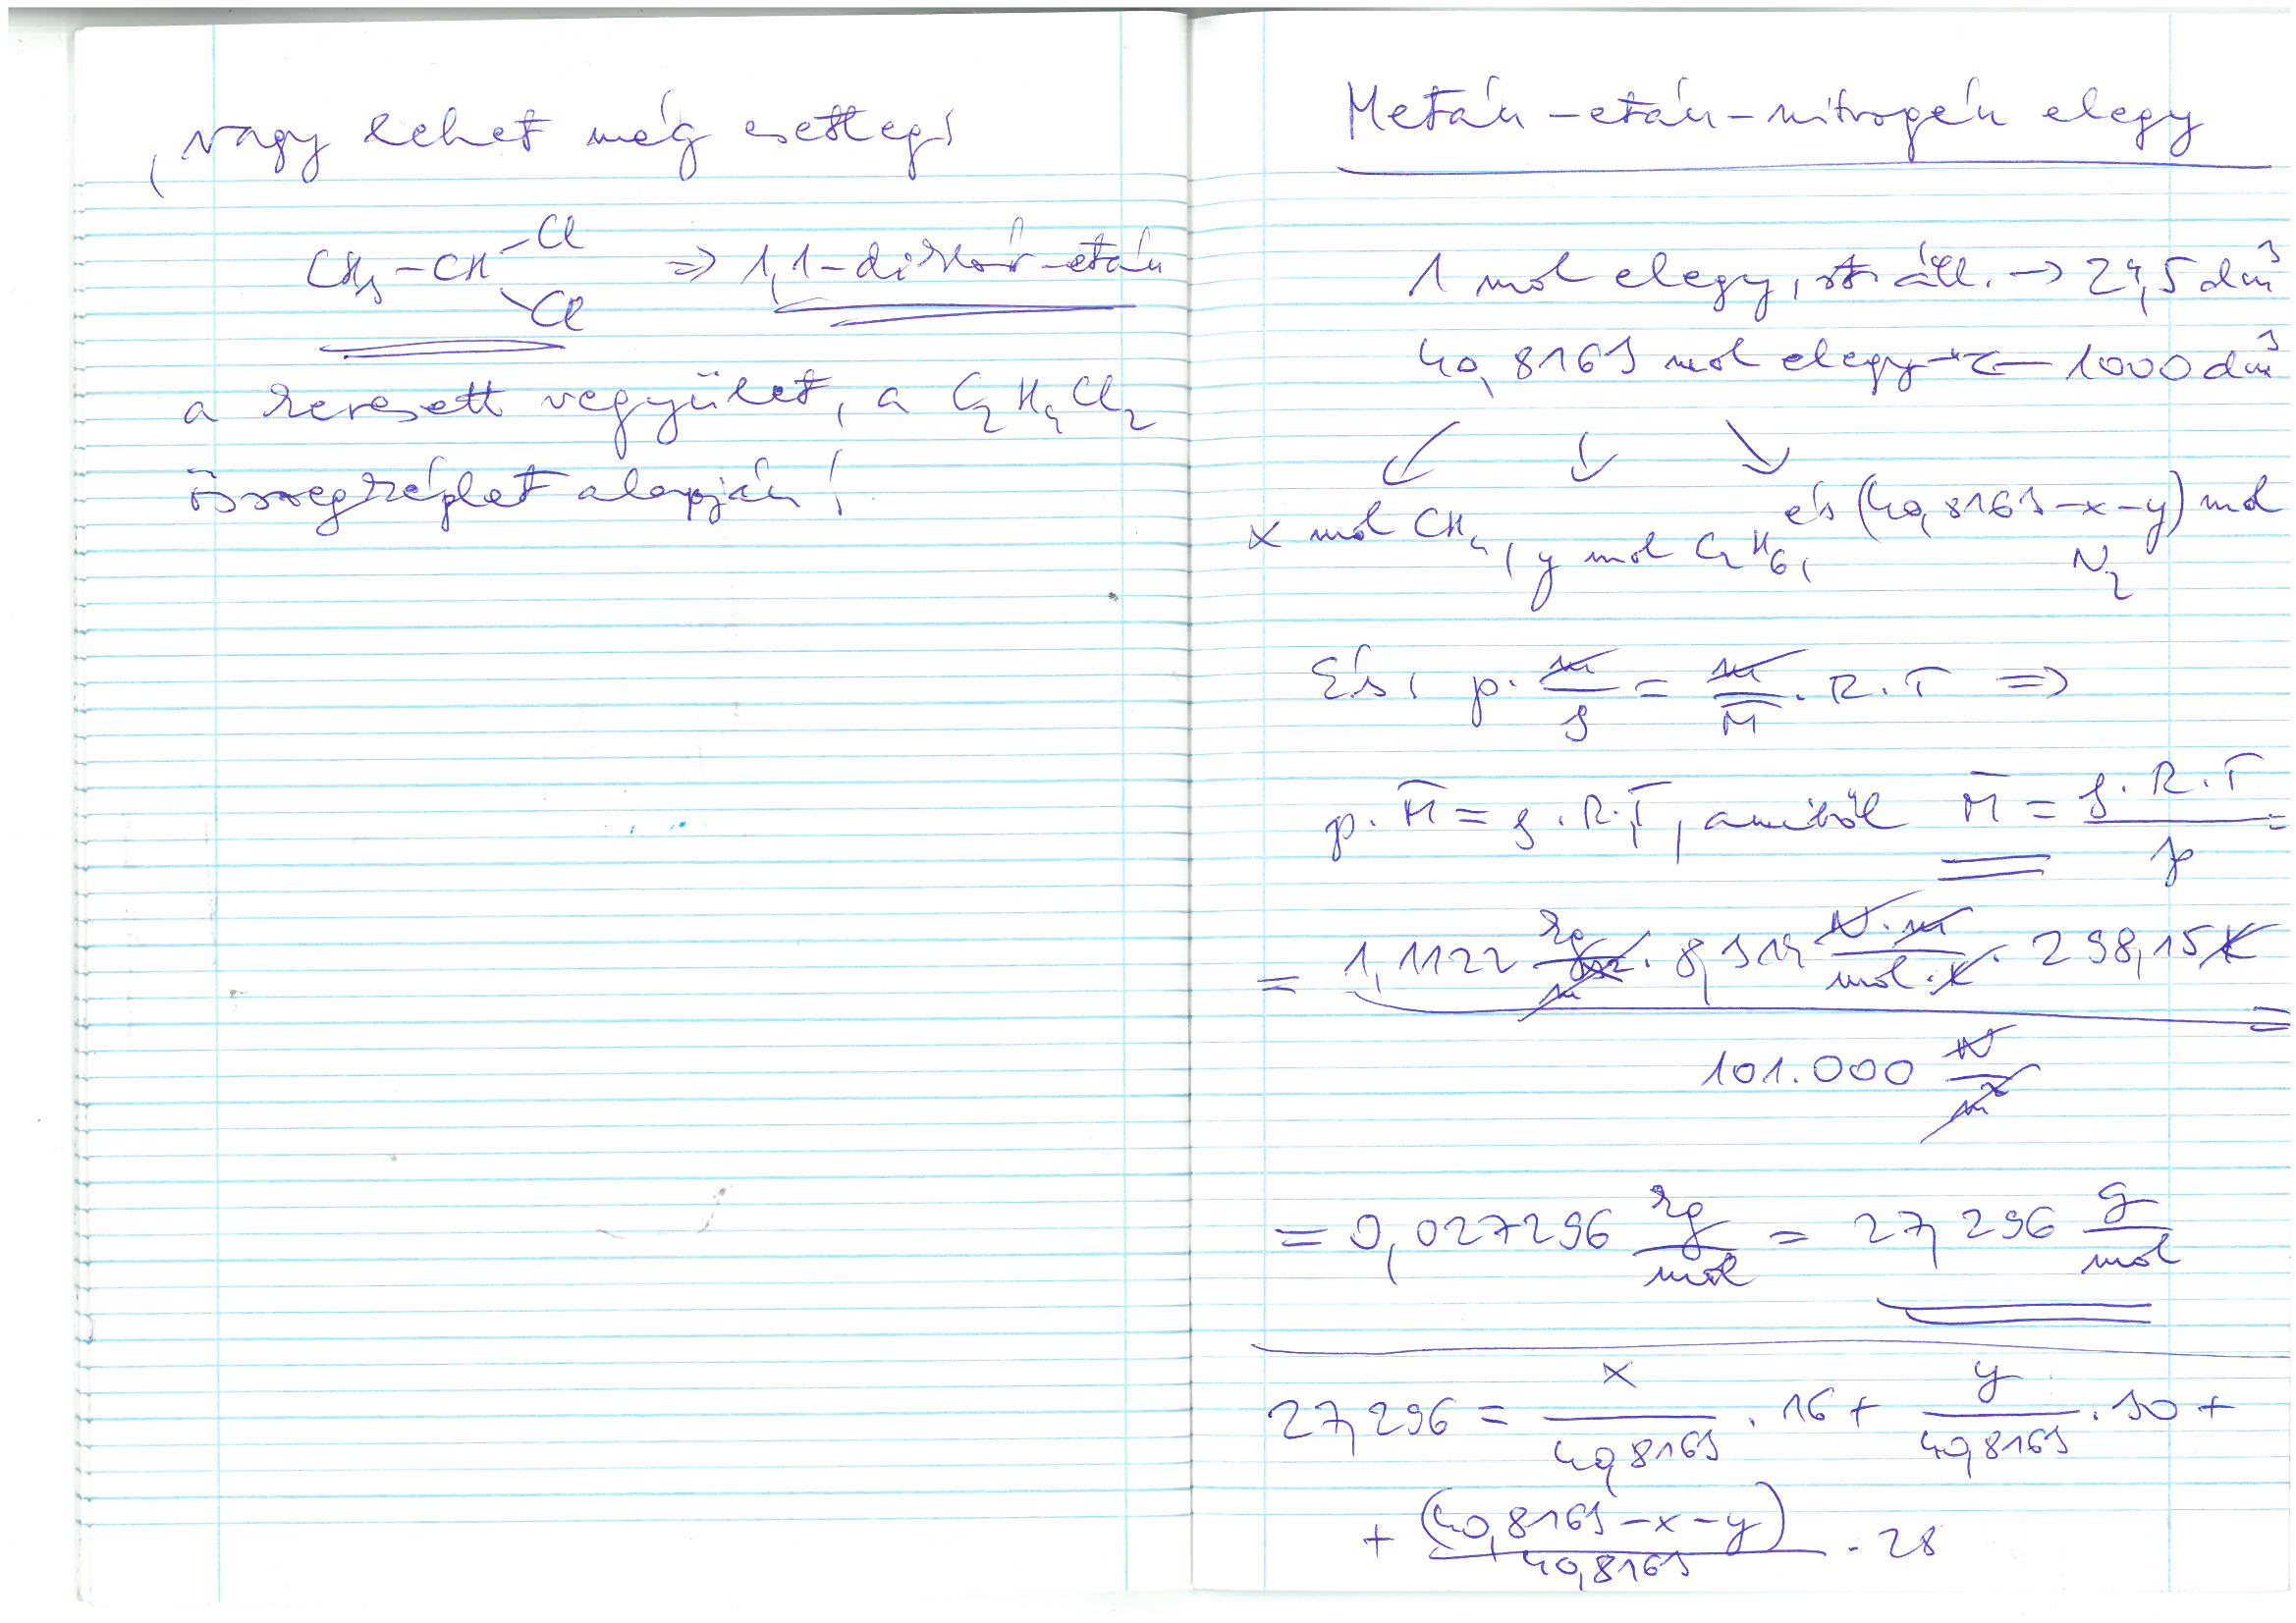 , vagy lehet még esetleg:
CH₃-CH
Cl
Cl
⇒ 1,1-diklór-etán
a keresett vegyület, a C₂H₄Cl₂
összegképlet alapján!
Metán-etán-nitrogén elegy
1 mol elegy, st. áll. → 24,5 dm³
40,8163 mol elegy ← 1000 dm³
↙ ↓ ↘
x mol CH₄, y mol C₂H₆, és (40,8163-x-y) mol N₂
És, p · m/ρ = m/M̄ · R · T ⇒
p · M̄ = ρ · R · T, amiből M̄ = ρ · R · T / p =
= 1,1122 kg/m³ · 8,314 N·m/mol·K · 298,15 K =
101.000 N/m²
= 0,027296 kg/mol = 27,296 g/mol
27,296 = x/40,8163 · 16 + y/40,8163 · 30 +
+ (40,8163-x-y)/40,8163 · 28